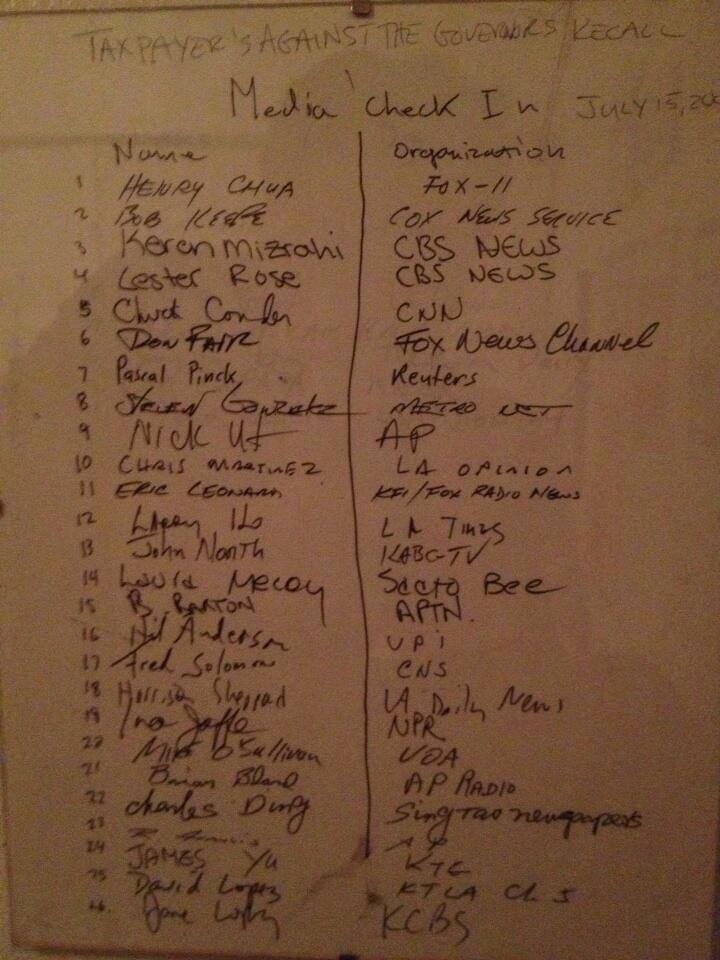 TAXPAYER'S AGAINST THE GOVERNORS RECALL
Media Check In JULY 15,
Name Organization
1 HENRY CHUA FOX-11
2 BOB KEEFE COX NEWS SERVICE
3 Keren Mizrahi CBS NEWS
4 Lester Rose CBS NEWS
5 Chuck Conder CNN
6 DON FAIR FOX News Channel
7 Pascal Pinck Reuters
8 STEVEN GONZALEZ METRO NET
9 NICK UT AP
10 CHRIS MARTINEZ LA OPINION
11 ERIC LEONARD KFI/FOX RADIO NEWS
12 LA Times
13 John North KABC-TV
14 McCoy Sacto Bee
15 B. BARTON APTN.
16 Anderson UPI
17 Fred Solomon CNS
18 Harrison Sheppard LA Daily News
19 Ina Jaffe NPR
20 Mike O'Sullivan VOA
21 Brian Bland AP RADIO
22 Charles Sing Tao newspapers
23
24 JAMES YU
25 David Lopez KTLA Ch 5
26. KCBS